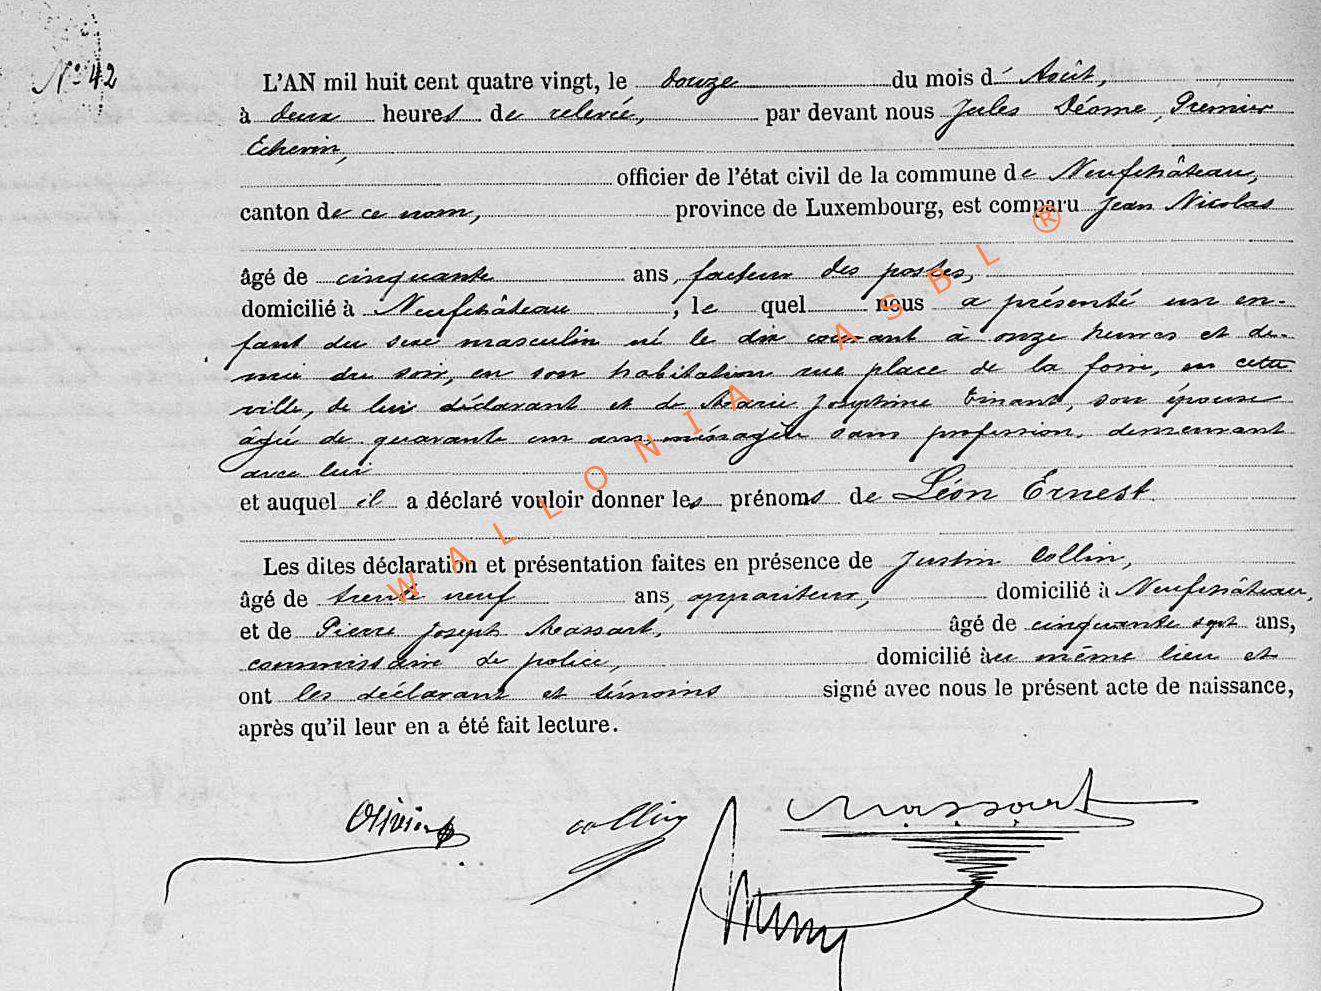 N° 42
L'AN mil huit cent quatre vingt, le douze du mois d' Août,
à deux heures de relevée, par devant nous Jules Déome, Premier
Echevin,
officier de l'état civil de la commune de Neufchâteau,
canton de ce nom, province de Luxembourg, est comparu Jean Nicolas
âgé de cinquante ans, facteur des postes,
domicilié à Neufchâteau, le quel nous a présenté un en-
fant du sexe masculin né le dix courant à onze heures et de-
mie du soir, en son habitation rue place de la foire, en cette
ville, de lui déclarant et de Marie Josephine, son épouse
âgée de quarante un ans, ménagère sans profession, demeurant
avec lui
et auquel il a déclaré vouloir donner les prénoms de Léon Ernest.
Les dites déclaration et présentation faites en présence de Justin Collin,
âgé de trente neuf ans, appariteur, domicilié à Neufchâteau,
et de Pierre Joseph Massart, âgé de cinquante sept ans,
commissaire de police, domicilié au même lieu et
ont les déclarant et témoins signé avec nous le présent acte de naissance,
après qu'il leur en a été fait lecture.
Olivier Collin Massart
WALLONIA ASBL ®